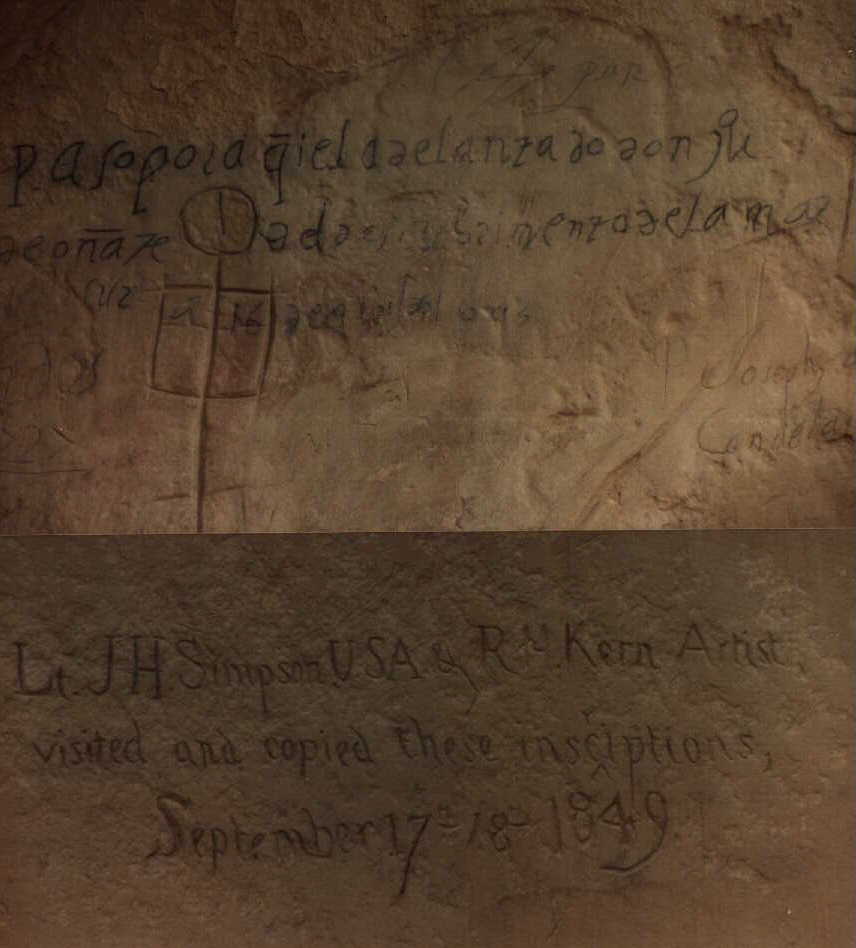 paso por aq̄i el adelantado don ju
de oñate del descubrimento de la mar
del sur a 16 de abril
P Joseph
Candela
Lt. J H. Simpson USA & R H. Kern Artist,
visited and copied these insciptions,
r
September 17th 18th 1849.